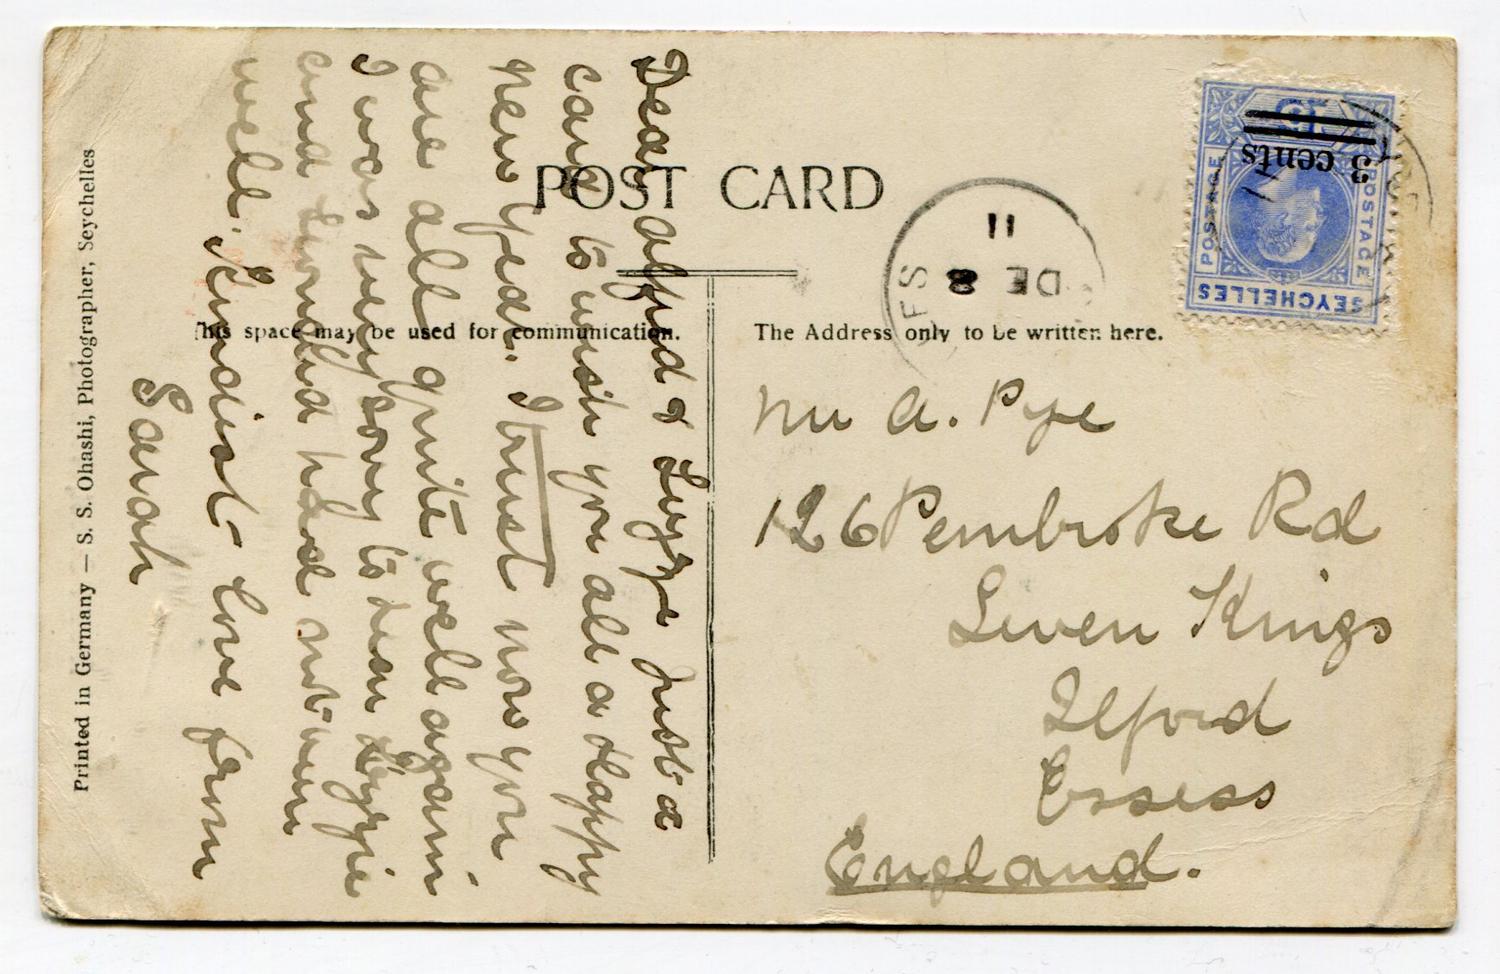 POST CARD
This space may be used for communication.
The Address only to be written here.
Printed in Germany — S. S. Ohashi, Photographer, Seychelles
Dear Alfred & Lizzie Just a
card to wish you all a Happy
New Year. I trust now you
are all quite well again
I was very sory to hear Lizzie
and had not been
well. Kindist love from
Sarah
Mr A. Pye
126 Pembroke Rd
Seven Kings
Ilford
Essess
England.
11
DE 8
ES
SEYCHELLES
POSTAGE
POSTAGE
3 cents
15